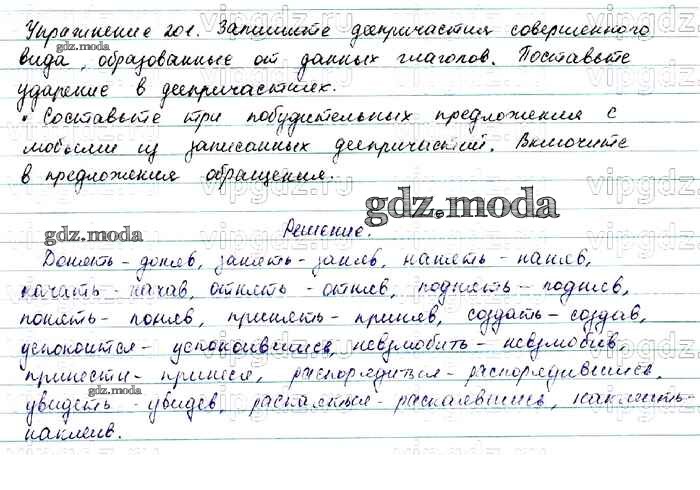 Упражнение 201. Запишите деепричастия совершенного
вида, образованные от данных глаголов. Поставьте
ударение в деепричастиях.
• Составьте три побудительных предложения с
любыми из записанных деепричастий. Включите
в предложения обращения.
gdz.moda
Решение.
Донять - доняв, занять - заняв, нанять - наняв,
начать - начав, отнять - отняв, поднять - подняв,
понять - поняв, принять - приняв, создать - создав,
успокоится - успокоившись, невзлюбить - невзлюбив,
принести - принеся, распорядиться - распорядившись,
увидеть - увидев, раскаяться - раскаявшись, наклеить-
наклеив.